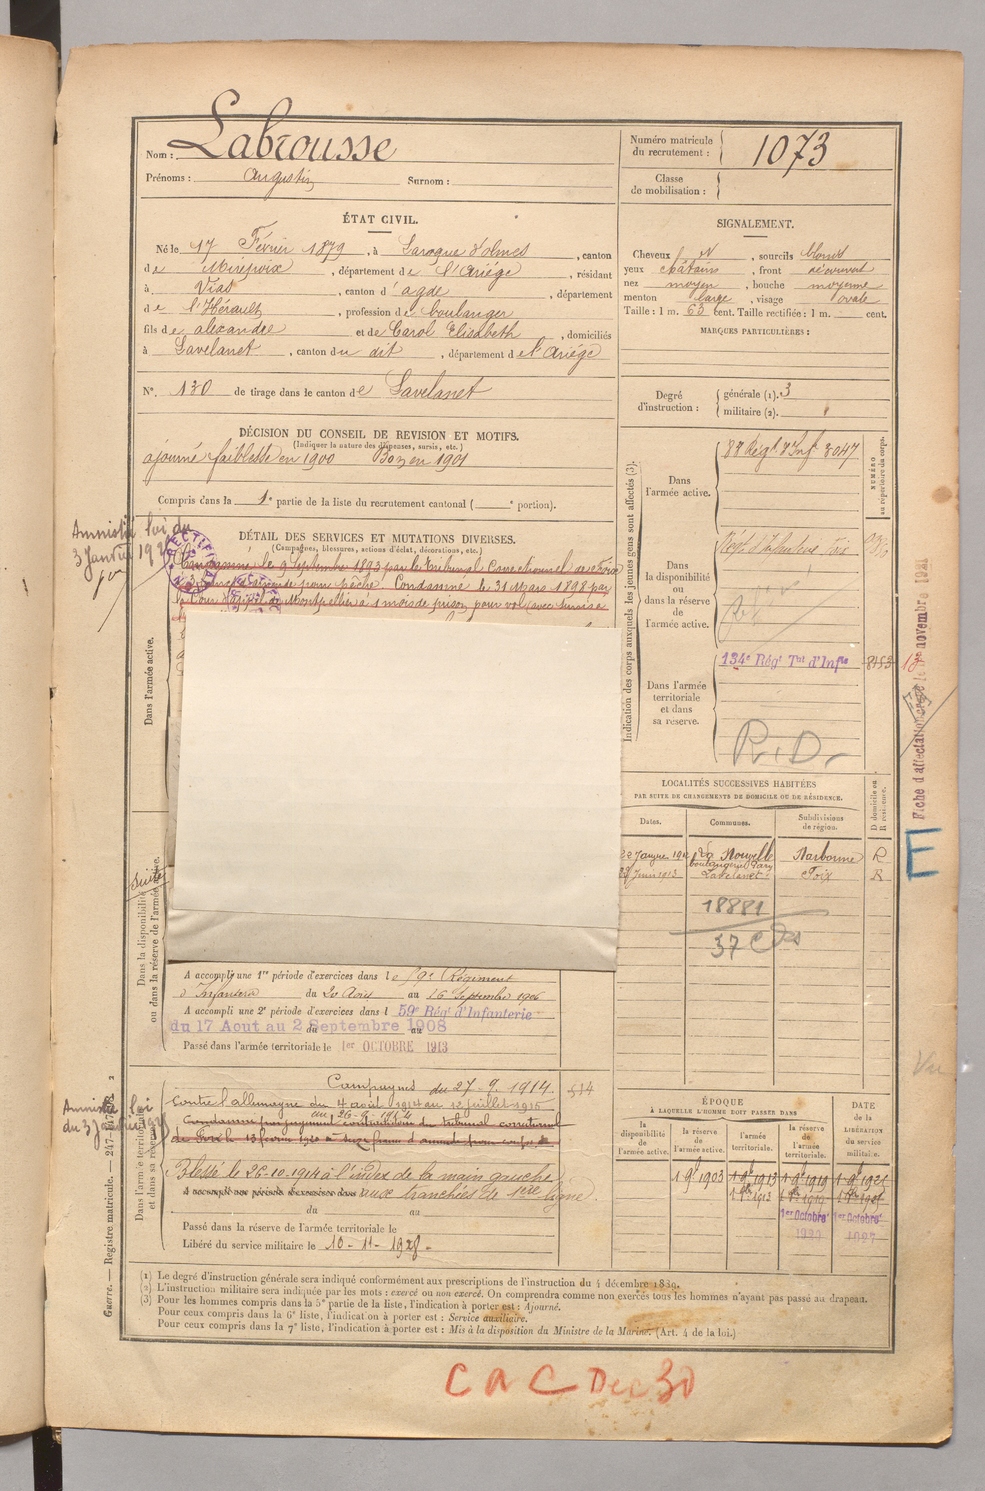 Nom : Labrousse
Prénoms : Augustin Surnom :
Numéro matricule du recrutement : 1073
Classe de mobilisation :
ÉTAT CIVIL.
Né le 17 Février 1879, à Laroque d'olmes, canton
de Mirepoix, département de l'Ariége, résidant
à Vias, canton d'agde, département
de l'Hérault, profession de boulanger
fils de alexandre et de Carol Elisabeth, domiciliés
à Lavelanet, canton du dit, département de l'Ariége
N°. 130 de tirage dans le canton de Lavelanet
SIGNALEMENT.
Cheveux d, sourcils blonds
yeux chatains, front découvert
nez moyen, bouche moyenne
menton large, visage ovale
Taille : 1 m. 63 cent. Taille rectifiée : 1 m. cent.
MARQUES PARTICULIÈRES :
Degré d'instruction : générale (1). 3
militaire (2).
DÉCISION DU CONSEIL DE REVISION ET MOTIFS.
(Indiquer la nature des dispenses, sursis, etc.)
ajourné faiblesse en 1900 Bon en 1901
Compris dans la 1e partie de la liste du recrutement cantonal ( e portion).
Amnistié loi du
3 Janvier 192
DÉTAIL DES SERVICES ET MUTATIONS DIVERSES.
(Campagnes, blessures, actions d'état, décorations, etc.)
Condamné le 9 Septembre 1893 par le Tribunal Correctionnel de Foix
pour pêche. Condamné le 31 Mars 1898 par
la Cour d'appel de Montpellier à 1 mois de prison pour vol (avec sursis
Dans l'armée active.
Dans la disponibilité ou dans la réserve de l'armée active.
Suite
A accompli une 1re période d'exercices dans le 59e Régiment
d'Infanterie du 20 Août au 16 Septembre 1906
A accompli une 2e période d'exercices dans l 59e Rég' d'Infanterie
du 17 Aout au 2 Septembre 1908
Passé dans l'armée territoriale le 1er OCTOBRE 1913
Indication des corps auxquels les jeunes gens sont affectés (3).
NUMÉRO au répertoire du corps.
Dans l'armée active.
88 Régt d'Inf 3047
Dans la disponibilité ou dans la réserve de l'armée active.
Dans l'armée territoriale et dans sa réserve.
134e Régt Tal d'Infie 8153
R.D.
Fiche d'affectation novembre
E
LOCALITÉS SUCCESSIVES HABITÉES
PAR SUITE DE CHANGEMENTS DE DOMICILE OU DE RÉSIDENCE.
Dates. Communes. Subdivisions de région. D domicile ou R résidence.
22 Janvier 1912 La Nouvelle Narbonne R
Juin 1913 Lavelanet Foix R
18881
37
Amnistié loi
du 3 Janvier
Dans l'armée territoriale et dans sa réserve.
Campagnes du 27-9. 1914.
Contre l'allemagne du 4 août 1914 au 12 juillet 1915
au 26-9-1914
Condamné par jugement contradictoire du tribunal correctionnel
de Foix le 13 février 1920 à seize francs d'amende pour coups
Blessé le 26-10-1914 à l'index de la main gauche
A accompli une période d'exercices dans aux tranchées de 1ère ligne.
du au
Passé dans la réserve de l'armée territoriale le
Libéré du service militaire le 10-11-1928.
ÉPOQUE
À LAQUELLE L'HOMME DOIT PASSER DANS
DATE DE LA LIBÉRATION DU service militaire.
la disponibilité de l'armée active. la réserve de l'armée active. l'armée territoriale. la réserve de l'armée territoriale.
1 9b 1903 1 9b 1913 1 9b 1919 1 9b 1925
1er Octobre 1er Octobre
(1) Le degré d'instruction générale sera indiqué conformément aux prescriptions de l'instruction du 4 décembre 1889.
(2) L'instruction militaire sera indiquée par les mots : exercé ou non exercé. On comprendra comme non exercés tous les hommes n'ayant pas passé au drapeau.
(3) Pour les hommes compris dans la 5e partie de la liste, l'indication à porter est : Ajourné.
Pour ceux compris dans la 6e liste, l'indication à porter est : Service auxiliaire.
Pour ceux compris dans la 7e liste, l'indication à porter est : Mis à la disposition du Ministre de la Marine. (Art. 4 de la loi.)
Guerre. — Registre matricule. — 247-
C A C Dec 30